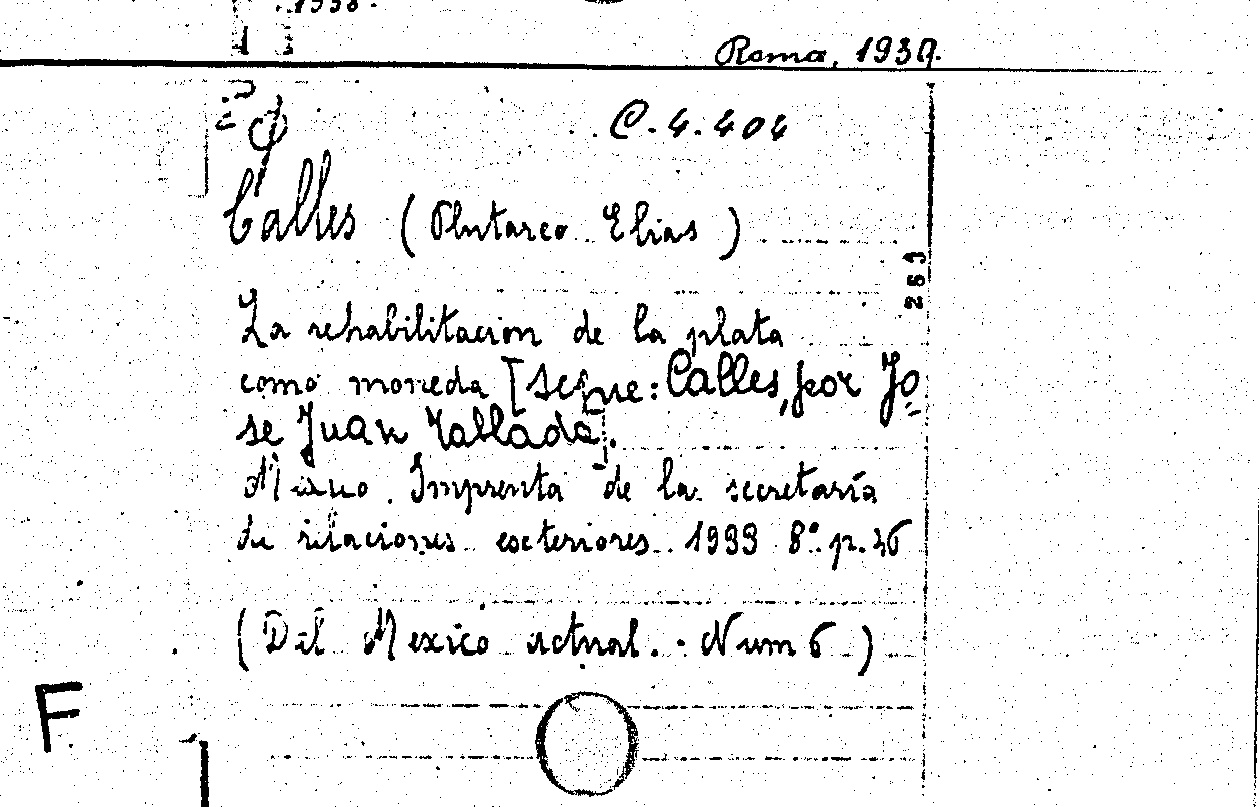 1938.
Roma, 1939.
C.4.404
Calles (Plutarco Elias)
263
La rehabilitacion de la plata
como moneda [segue: Calles, por Jo
se Juan Tablada].
Mexico. Imprenta de la secretaría
de relaciones exteriores 1933 8° p. 36
(Del Mexico actual. - Num 6)
F